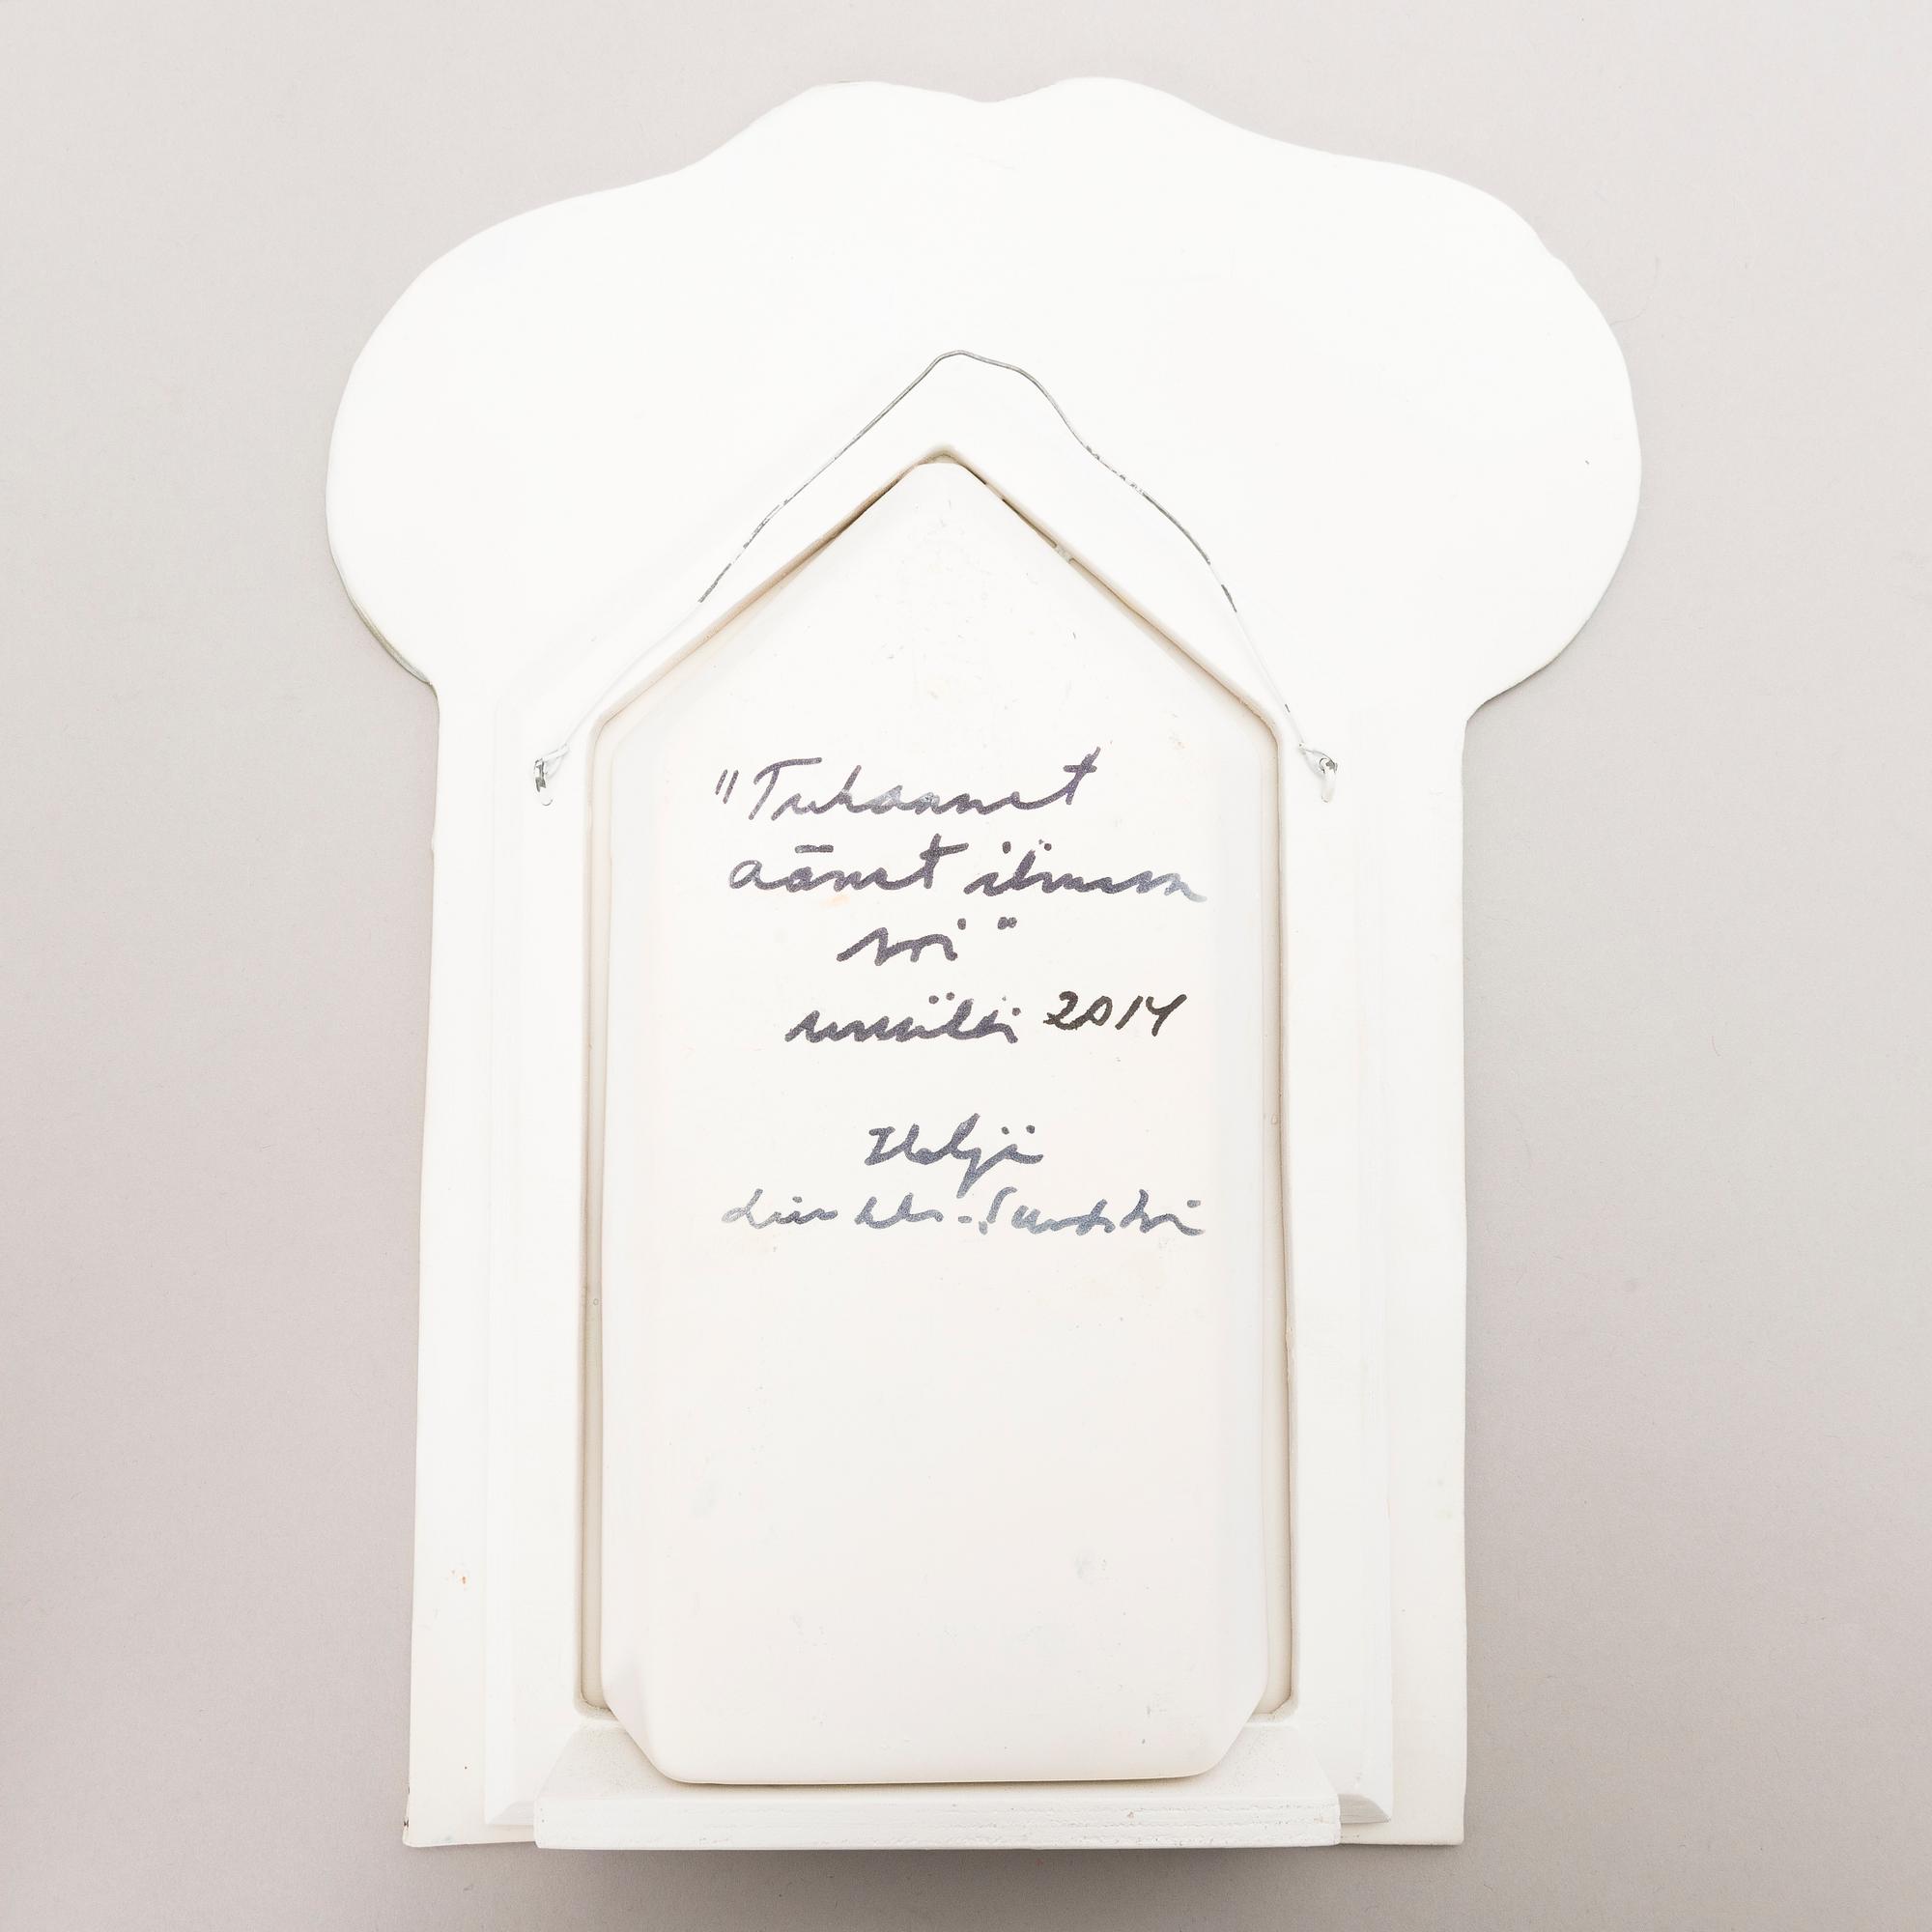 "Tuhannet
äänet ilman
soi"
uniikki 2014
Heljä
Liukko-Sundström